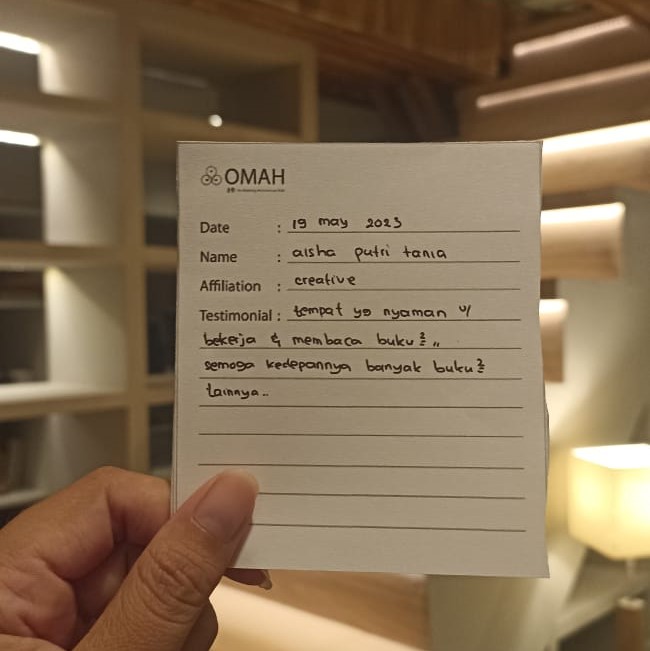 OMAH
Date : 19 may 2023
Name : aisha putri tania
Affiliation : creative
Testimonial : tempat yg nyaman u/
bekerja & membaca buku² „
semoga kedepannya banyak buku²
lainnya..